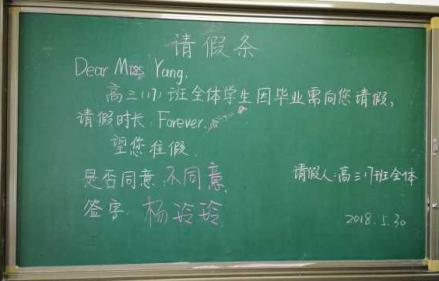 请假条
Dear Miss Yang,
高三(17)班全体学生因毕业需向您请假,
请假时长:Forever.
望您准假.
是否同意:不同意
签字:杨玲玲
请假人:高三17班全体
2018.5.30